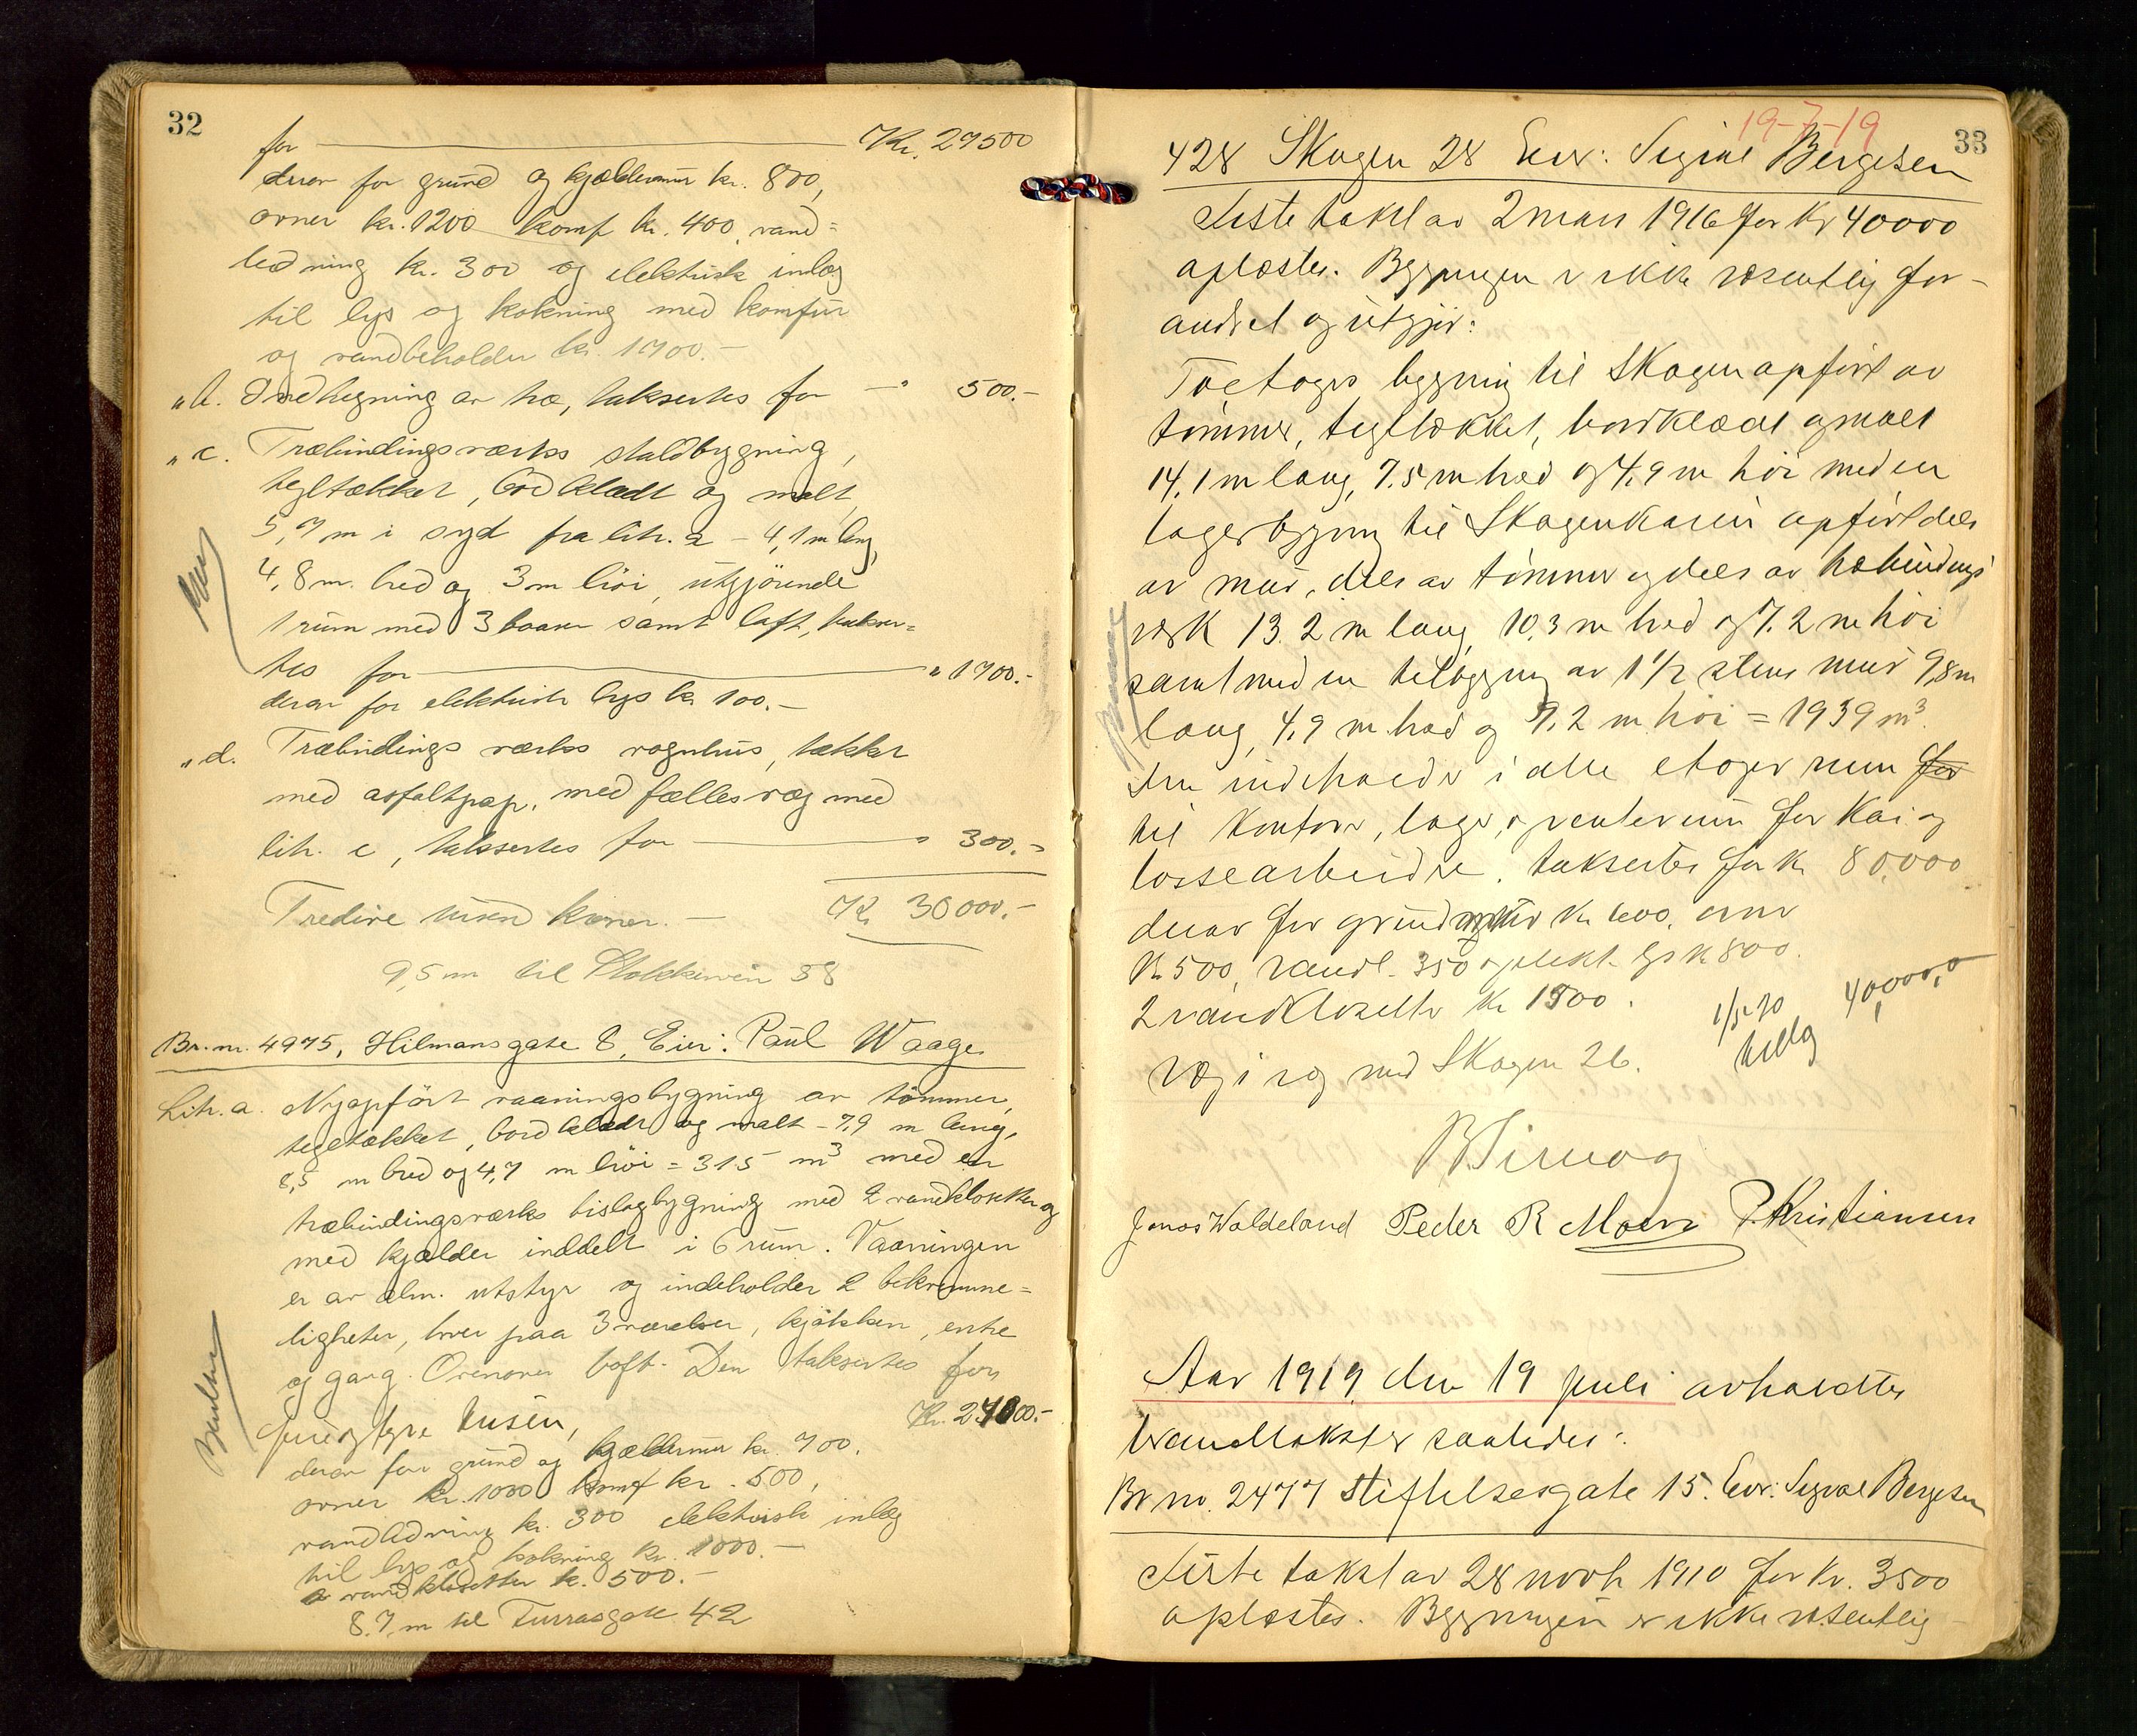 32
for Kr. 27500
derav for grund og kjældermur kr. 800,
ovner kr. 1200 komf kr. 400, vand=
ledning kr. 300 og elektrisk indlæg
til lys og kokning med komfur
og vandbeholder kr. 1700.-
" b. Indhegning av træ, taksertes for - " 500.-
" c. Træbindingsværks staldbygning,
tegltækket, bordklædt og malt,
5,7 m i syd fra litr. a - 4,1 m lang,
4,8 m. bred og 3 m høi, utgjørende
1 rum med 3 baaser samt loft, takser=
tes for " 1700.-
derav for elektrisk lys kr. 100.-
" d. Træbindings værks vognhus, tækket
med asfaltpap, med fælles væg med
litr. c, taksertes for " 300.-
Tredive tusen kroner.- Kr. 30000.-
9,5 m til Stokkaveien 38
Br. nr. 4975, Hilmarsgate 8, Eier: Paul Waage
Litr. a. Nyopført vaaningsbygning av tømmer,
tegltækket, bordklædt og malt - 7,9 m lang,
8,5 m bred og 4,7 m høi = 315 m³ med en
træbindingsværks bislagbygning med 2 vandklosetter og
med kjælder inddelt i 6 rum. Vaaningen
er av alm. utstyr og indeholder 2 bekvemme=
ligheter, hver paa 3 værelser, kjøkken, entre
og gang. Ovenover loft. Den taksertes for
fireogtyve tusen, Kr. 24000.-
derav for grund og kjældermur kr. 700.
ovner kr. 1000 komf kr. 500,
vandledning kr. 300 elektrisk inlæg
til lys og kokning kr. 1000.-
2 vandklosetter kr. 500.-
8.7 m til Furrasgate 42
19-7-19
33
428 Skagen 28 Eier: Sigval Bergesen
Siste takst av 2 mars 1916 for Kr 40000
oplæstes. Bygningen er ikke væsentlig for-
andret og utgjør:
Toetages bygning til Skagen opført av
tømmer, tegltækket, bordklædt og malt
14,1 m lang, 7.5 m bred og 4,9 m høi med en
lagerbygning til Skagenkaien opført dels
av mur, dels av tømmer og dels av træbindings
værk 13.2 m lang, 10,3 m bred og 7.2 m høi
samt med en tilbygning av 1 1/2 stens mur 9,8 m
lang, 4,9 m. bred og 7,2 m. høi = 1939 m³.
Den indeholder i alle etager rum for
til kontorer, lager, og venterum for Kai og
lossearbeidere. taksertes for kr 80,000
derav for grundmur kr 600, ovner
Kr 500, vandl. 350 og elekt. lys kr 800.
2 vandklosetter kr 1500.
Væg i væg med Skagen 26.
40,000,0
Jonas Waldeland Peder R Moen P. Kristiansen
Aar 1919, den 19 juli avholdtes
brandtakster saaledes:
Br no. 2477 Stiftelsesgate 15. Eier: Sigval Bergesen
Siste takst av 28 novbr 1910 for Kr. 3500
oplæstes. Bygningen er ikke væsentlig